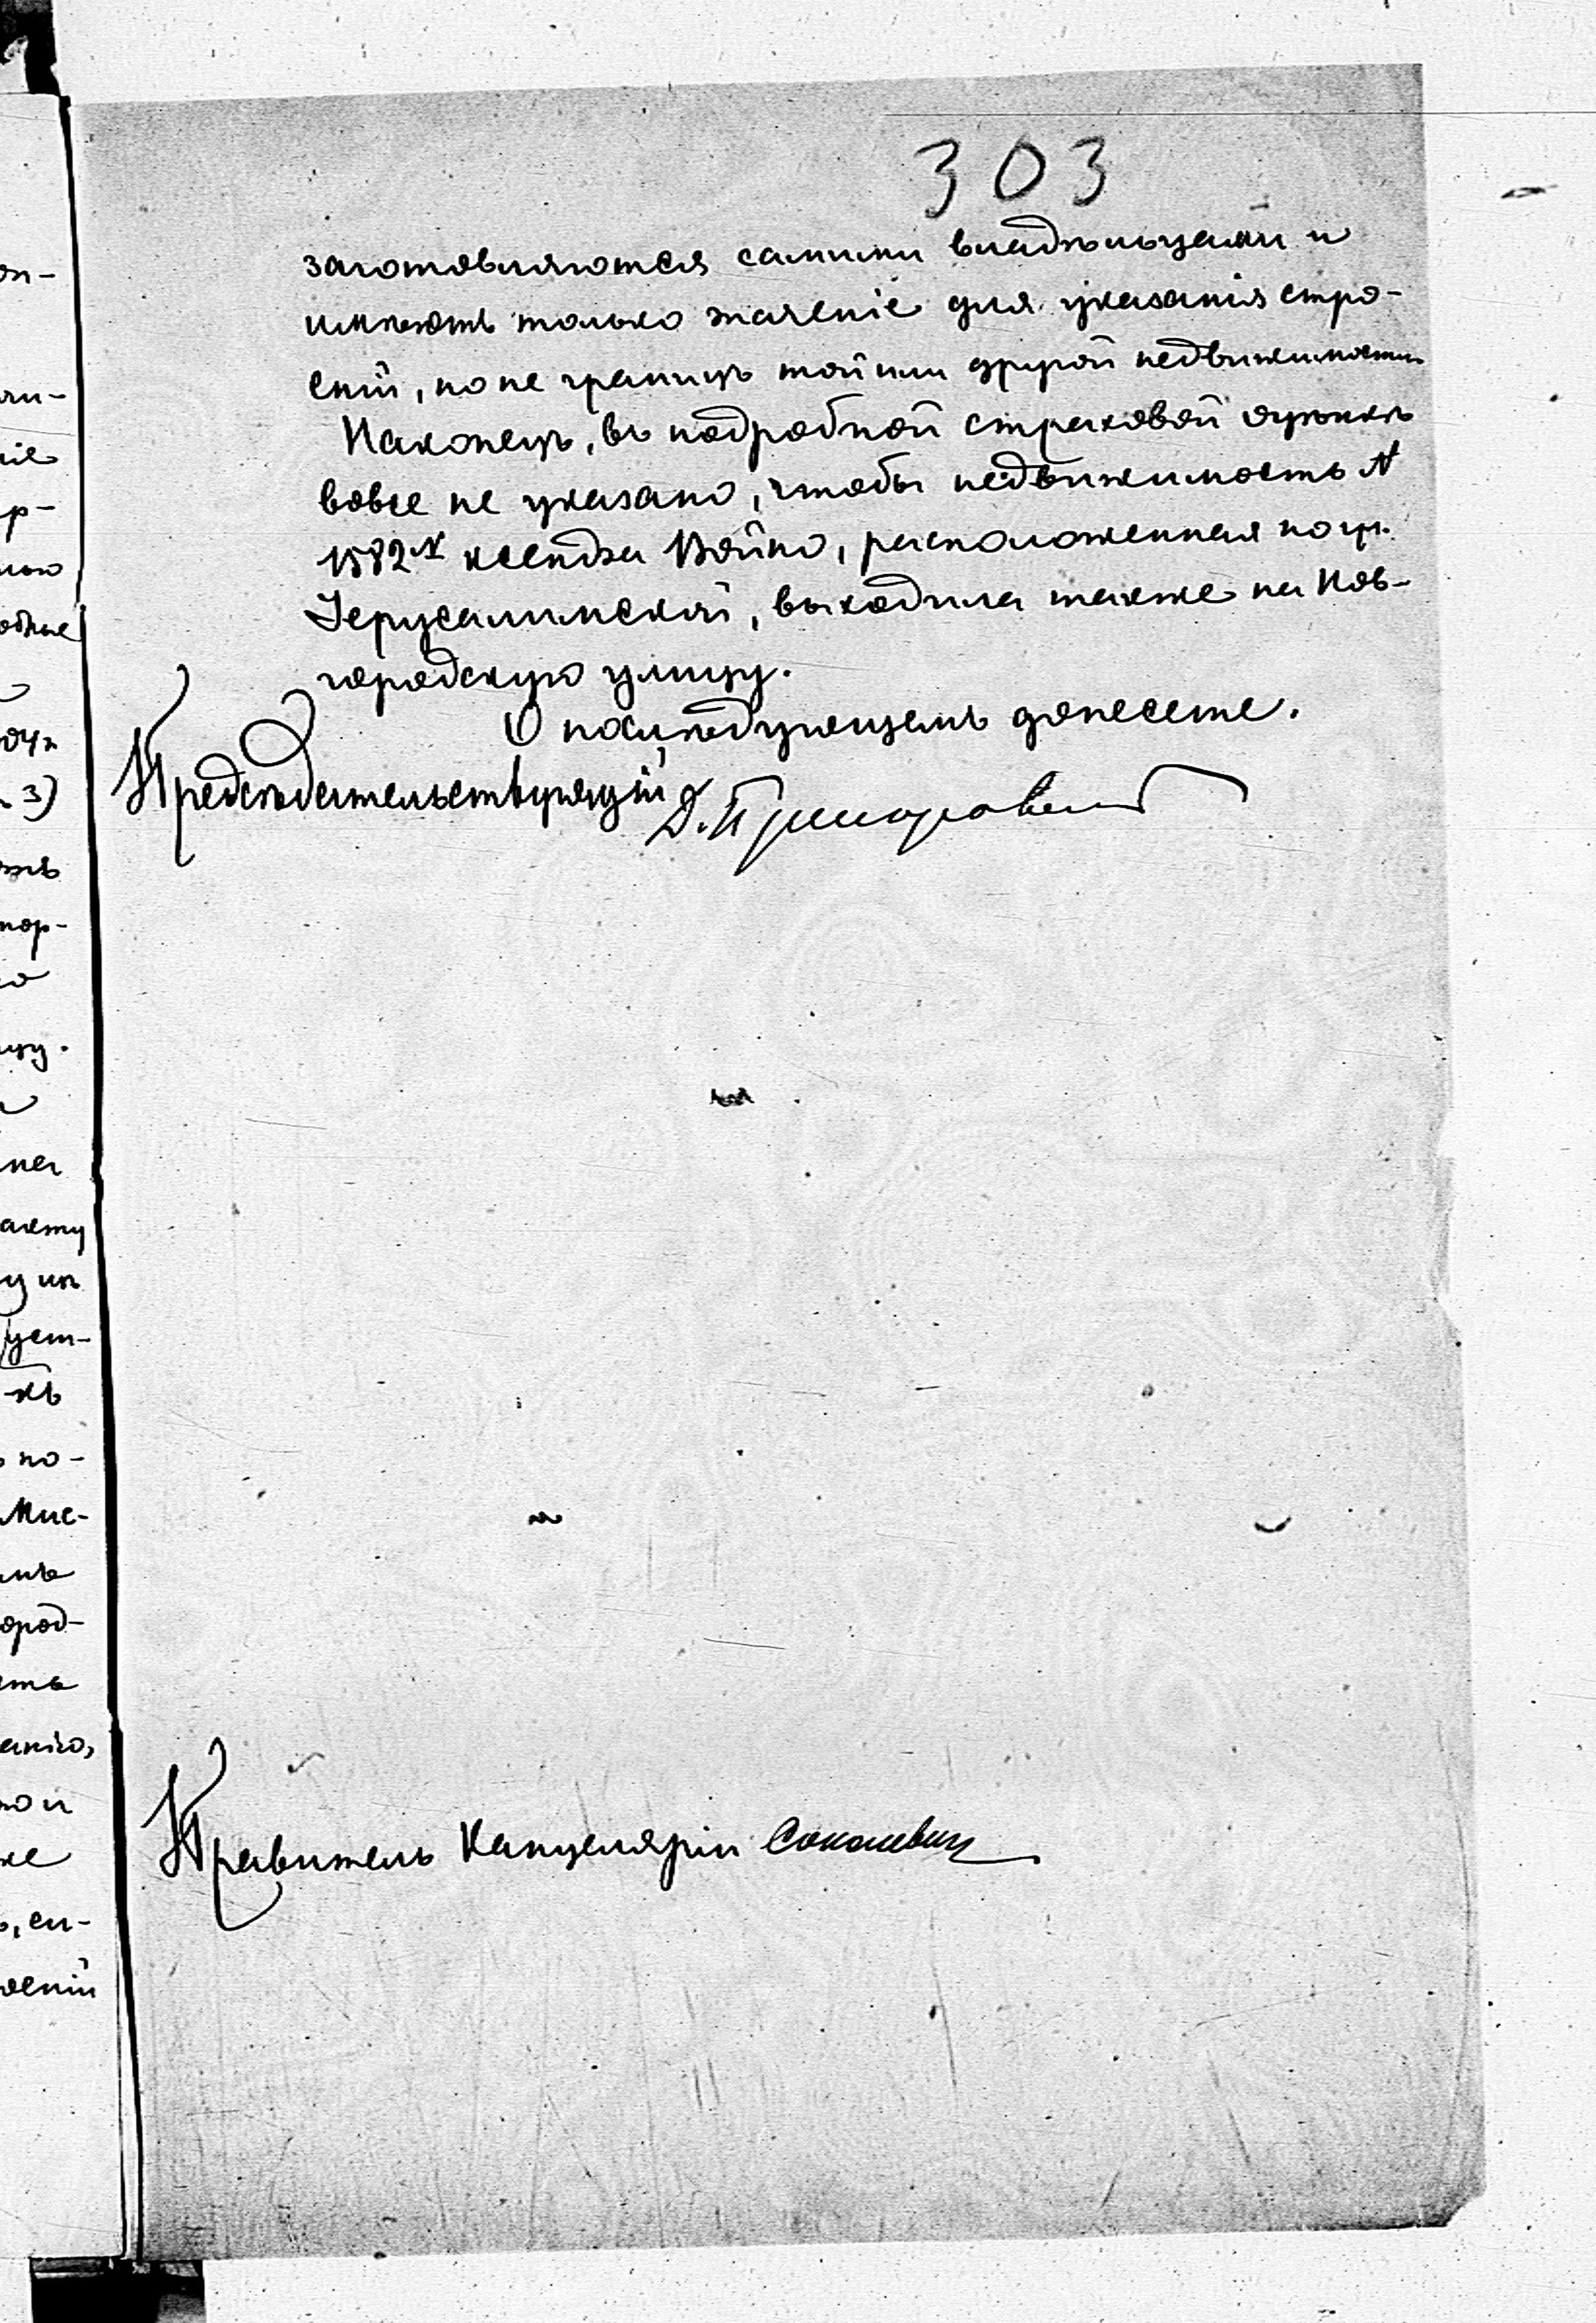 303
заготовляются самими владѣльцами и
имѣютъ только значеніе для указанія стро-
еній, но не границъ той или другой недвижимости
Наконецъ, въ подробной страховой оцѣнкѣ
вовсе не указано, чтобы недвижимость №
1582 ксендза Войно, расположенная по ул.
Іерусалимской, выходила также на Нов-
городскую улицу.
О послѣдующемъ донесете.
Предсѣдательствующій
Правитель Канцеляріи